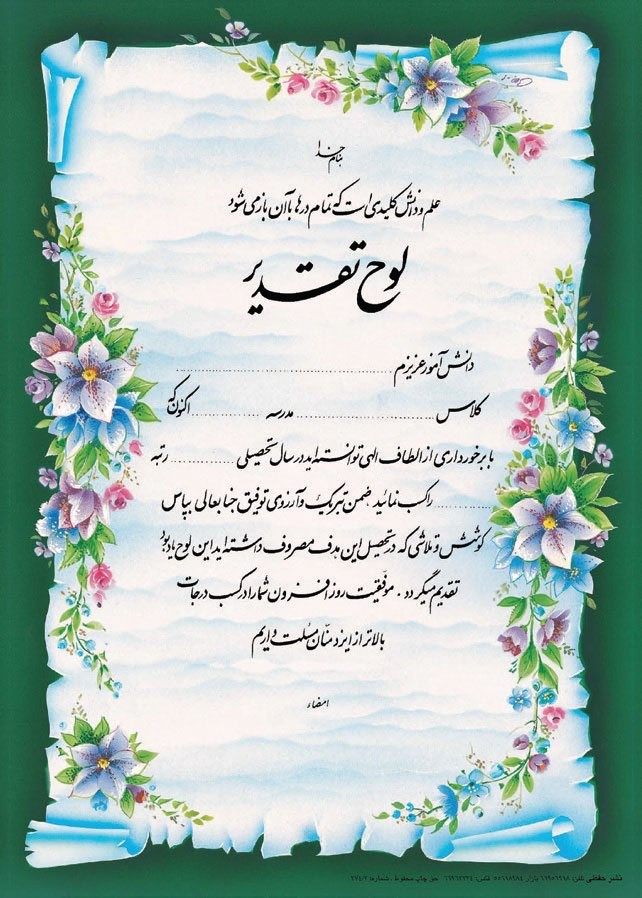 بنام خدا
علم و دانش کلیدی است که تمام درها با آن باز می شود
لوح تقدیر
دانش آموز عزیزم ..............................
کلاس .............................. مدرسه .................. اکنون که
با برخورداری از الطاف الهی توانسته اید در سال تحصیلی ............... رتبه
............... را کسب نمائید ضمن تبریک و آرزوی توفیق جنابعالی بپاس
کوشش و تلاشی که در تحصیل این هدف مصروف داشته اید این لوح یادبود
تقدیم میگردد . موفقیت روز افزون شما را در کسب درجات
بالاتر از ایزد منّان مسئلت داریم
امضاء
نشر حفظی تلفن: ۶۶۹۵۶۹۶۸ بازار: ۵۵۶۱۸۹۸۴ فکس: ۶۶۹۶۲۲۲۴ حق چاپ محفوظ . شماره: ۲۷۴/۲